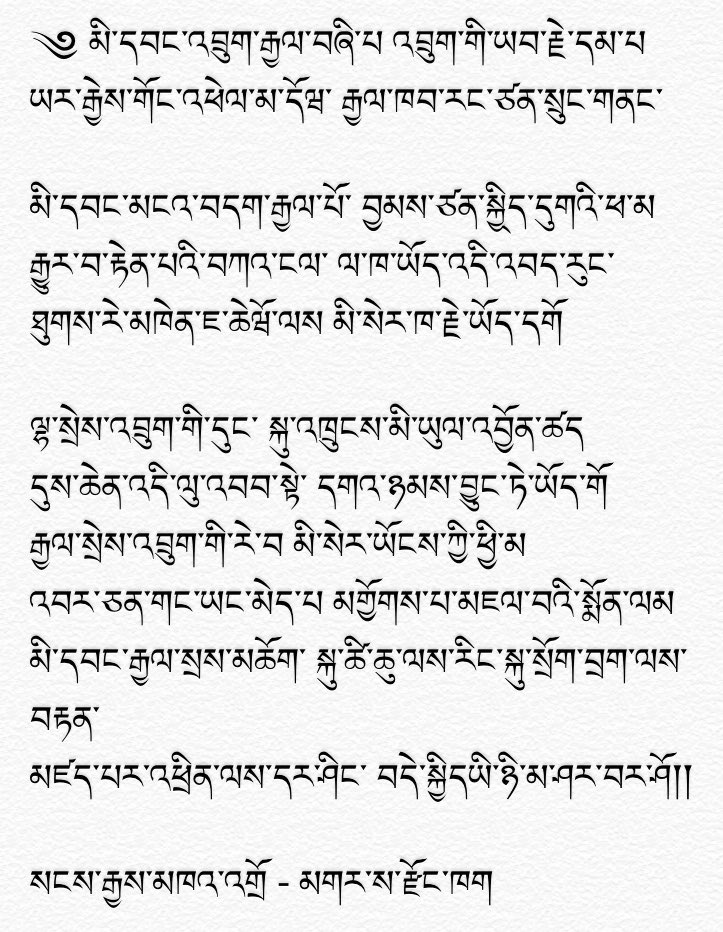 ༄ མི་དབང་འབྲུག་རྒྱལ་བཞི་པ འབྲུག་གི་ཡབ་རྗེ་དམ་པ
ཡར་རྒྱེས་གོང་འཕེལ་མ་དོཝ་ རྒྱལ་ཁབ་རང་ཙན་སྲུང་གནང་
མི་དབང་མངའ་བདག་རྒྱལ་པོ་ བྱམས་ཙན་སྐྱིད་དུགའི་ཕ་མ
རྒྱུར་བ་རྟེན་པའི་བཀའ་ངལ་ ལ་ཁ་ཡོད་འདི་འབད་རུང་
ཐུགས་རེ་མཁེན་ཇ་ཆེཝོ་ལས མི་སེར་ཁ་རྗེ་ཡོད་དགོ
ལྷ་སྲེས་འབྲུག་གི་དུང་ སྐུ་འཁྲུངས་མི་ཡུལ་འབྱོན་ཚད
དུས་ཆེན་འདི་ལུ་འབབ་སྟེ་ དགའ་ཉམས་བྱུང་ཏེ་ཡོད་གོ
རྒྱལ་སྲེས་འབྲུག་གི་རེ་བ མི་སེར་ཡོངས་ཀྱི་ཕྱི་མ
འབར་ཅན་གང་ཡང་མེད་པ མགྱོགས་པ་མཇལ་བའི་སྨོན་ལམ
མི་དབང་རྒྱལ་སྲས་མཆོག་ སྐུ་ཚེ་ཆུ་ལས་རིང་སྐུ་སྲོག་བྲག་ལས་
བརྟན་
མཛད་པར་འཕྲིན་ལས་དར་ཤིང་ བདེ་སྐྱིདཡི་ཉི་མ་ཤར་བར་ཤོ།།
སངས་རྒྱས་མཁའ་འགྲོ - མགར་ས་རྫོང་ཁག